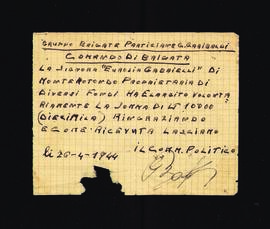 GRUPPO BRIGATE PARTIGIANE G. GARIBALDI
COMANDO DI BRIGATA
LA SIGNORA "EUROSIA GABRIELLI" DI
MONTEROTONDO PROPRIETARIA DI
DIVERSI FONDI HA ELARGITO VOLONTA
RIAMENTE LA SOMMA DI L. 10000
(DIECIMILA) RINGRAZIANDO
E CORE RICEVUTA LASCIAMO
IL COMM. POLITICO
li 26-4-1944